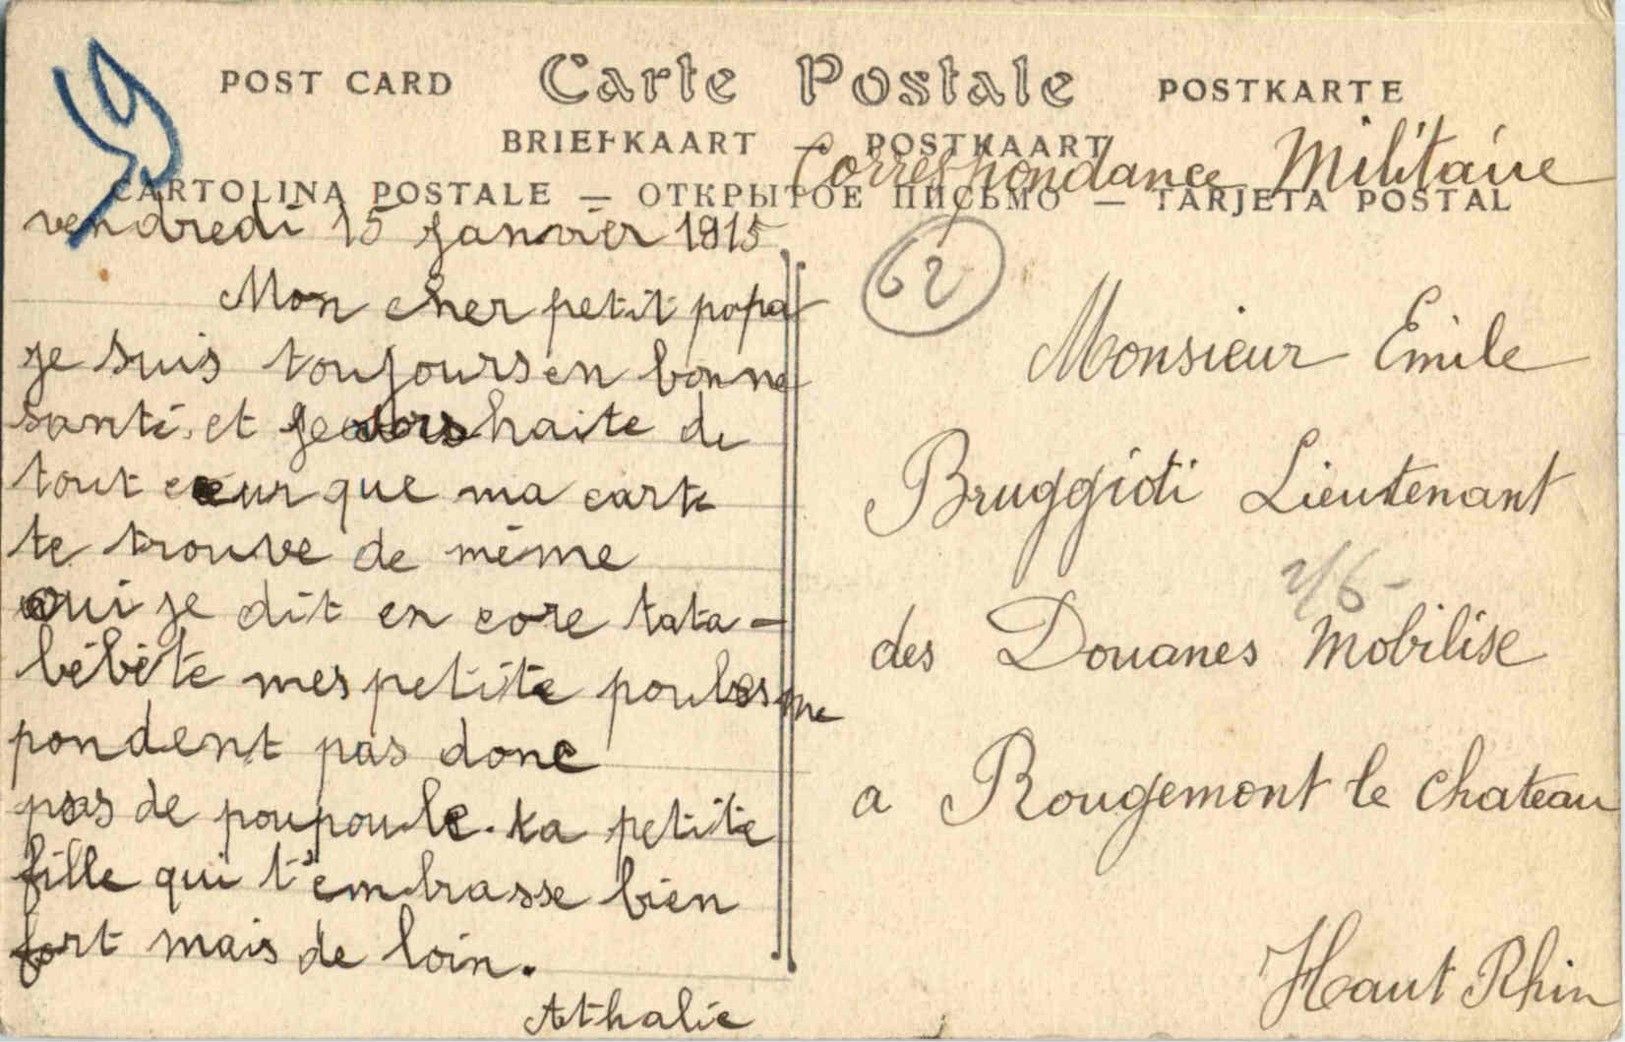 POST CARD Carte Postale POSTKARTE
BRIEFKAART — POSTKAART
CARTOLINA POSTALE — ОТКРЫТОЕ ПИСЬМО — TARJETA POSTAL
Correspondance Militaire
vendredi 15 janvier 1915
Mon cher petit papa
je suis toujours en bonne
santé, et je souhaite de
tout cœur que ma carte
te trouve de même
oui je dit en core tata-
bébéte mes petite poules ne
pondent pas donc
pas de poupoule. ta petite
fille qui t'embrasse bien
fort mais de loin.
Athalie
62
Monsieur Emile
Bruggioti Lieutenant
des Douanes Mobilise
a Rougemont le chateau
Haut Rhin